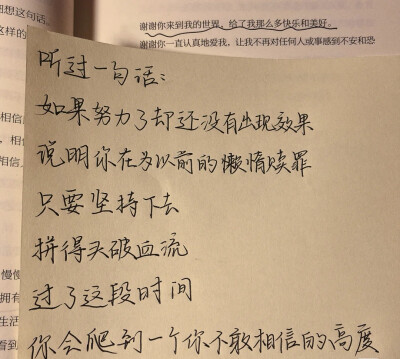 细想这句话。
这样的
谢谢你来到我的世界，给了我那么多快乐和美好。
谢谢你一直认真地爱我，让我不再对任何人或事感到不安和恐
听过一句话：
如果努力了却还没有出现效果
说明你在为以前的懒惰赎罪
只要坚持下去
拼得头破血流
过了这段时间
你会爬到一个你不敢相信的高度
相信
相信
慢慢
拥有
生活
看到